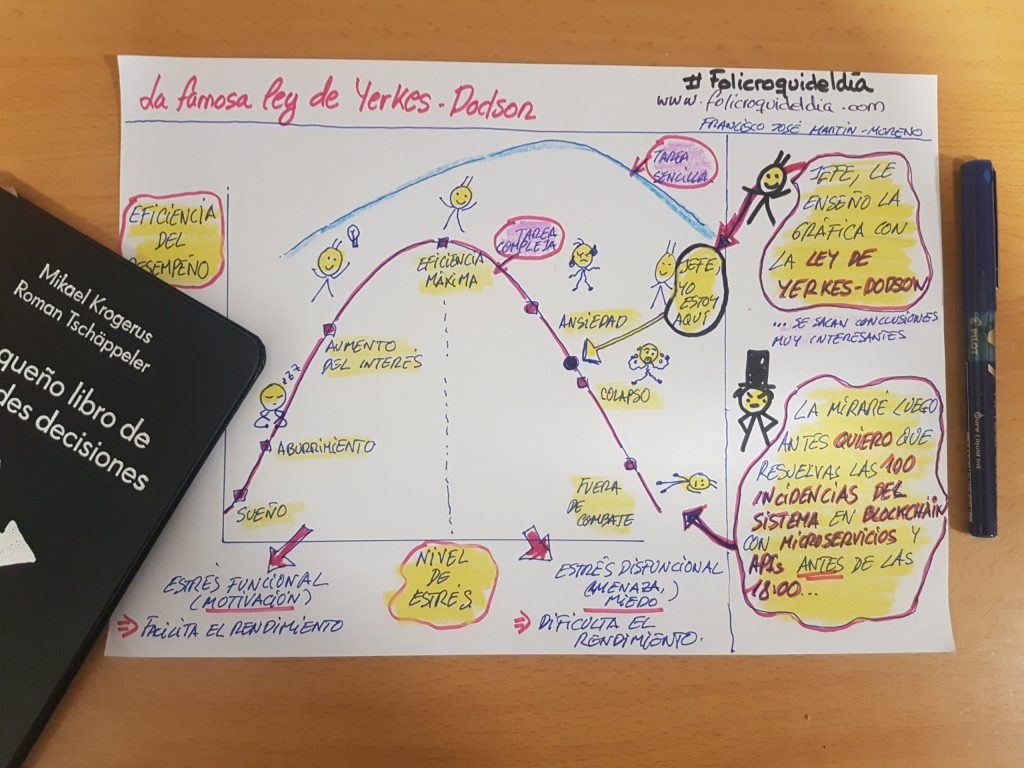 La famosa ley de Yerkes-Dodson
#Folicroquideldía
www.folicroquideldia.com
FRANCISCO JOSÉ MARTÍN-MORENO
EFICIENCIA
DEL
DESEMPEÑO
TAREA
SENCILLA
TAREA
COMPLEJA
EFICIENCIA
MÁXIMA
AUMENTO
DEL INTERÉS
ABURRIMIENTO
SUEÑO
ANSIEDAD
COLAPSO
FUERA
DE
COMBATE
JEFE,
YO
ESTOY
AQUÍ
ESTRÉS FUNCIONAL
(MOTIVACIÓN)
FACILITA EL RENDIMIENTO
NIVEL
DE
ESTRÉS
ESTRÉS DISFUNCIONAL
(AMENAZA,
MIEDO)
DIFICULTA EL
RENDIMIENTO.
JEFE, LE
ENSEÑO LA
GRÁFICA CON
LA LEY DE
YERKES-DODSON
... SE SACAN CONCLUSIONES
MUY INTERESANTES
LA MIRARÉ LUEGO
ANTES QUIERO QUE
RESUELVAS LAS 100
INCIDENCIAS DEL
SISTEMA EN BLOCKCHAIN
CON MICROSERVICIOS Y
APIs ANTES DE LAS
18:00...
Mikael Krogerus
Roman Tschäppeler
queño libro de
des decisiones
PILOT